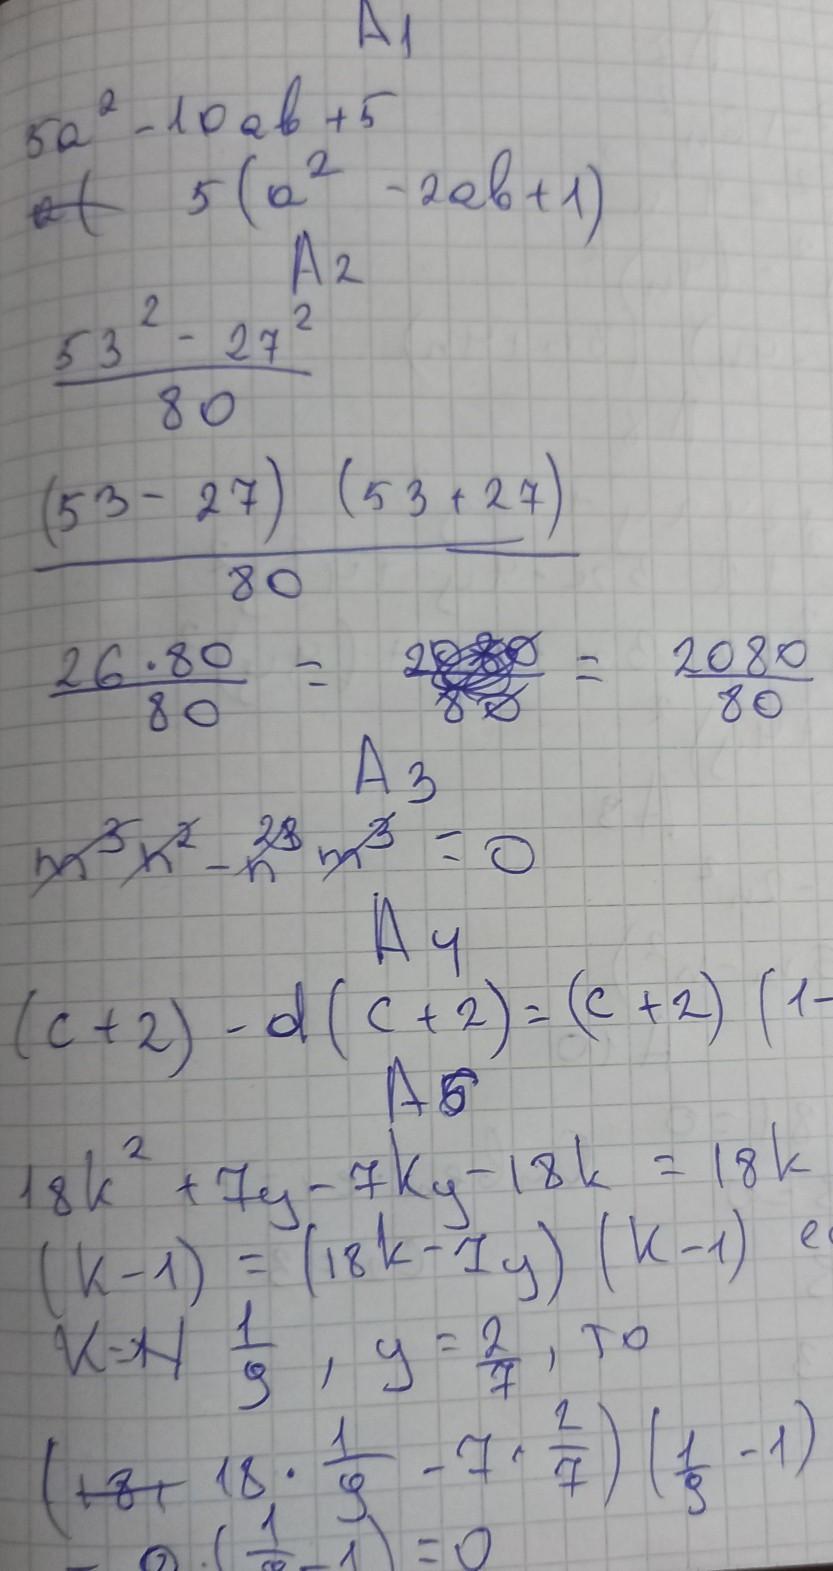 A1
5a² - 10ab + 5
5(a² - 2ab + 1)
A2
53² - 27²
80
(53 - 27) (53 + 27)
80
26 · 80 / 80 = = 2080 / 80
A3
m³n² - n² m³ = 0
A4
(c + 2) - d(c + 2) = (c + 2) (1 -
A5
18k² + 7y - 7ky - 18k = 18k
(k - 1) = (18k - 7y) (k - 1)
k = 1/9, y = 2/7, то
(18 · 1/9 - 7 · 2/7) (1/9 - 1)
(1/9 - 1) = 0